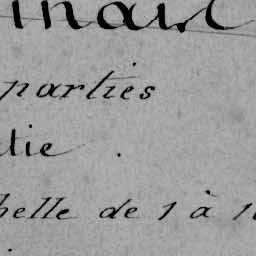 parties
tie .
helle de 1 à 1